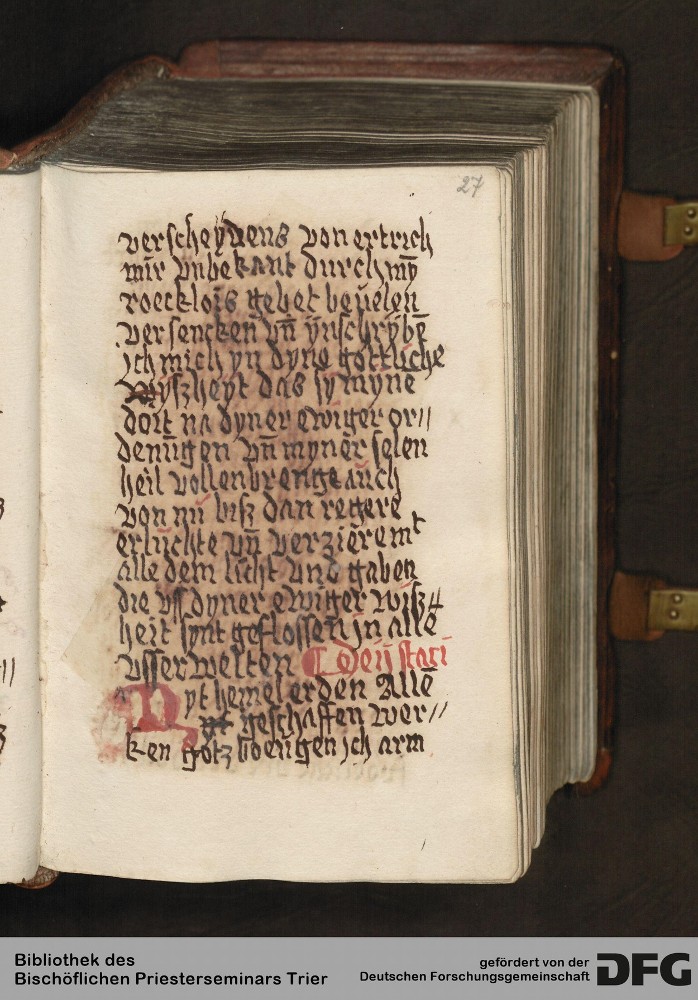 27
verscheydens von ertrich
mir vnbekant durch mȳ
roecklois gebet beuelen
versencken vn̄ ynschrybē
ich mich yn dyne gottliche
wyszheyt das sy mynē
doit na dyner ewiger or//
denūgen vn̄ myner selen
heil vollenbrenge auch
von nū bisz dan regere
erluchte vn̄ verziere mt
alle dem lūcht vnd gaben
die vss dyner ewiger wisz//
heit synt geflossen jn alle
vsserwelten deij stati
Myt hemel erden Allē
geschaffen wer//
ken gotz boeugen ich arm
Bibliothek des
Bischöflichen Priesterseminars Trier
gefördert von der
Deutschen Forschungsgemeinschaft
DFG